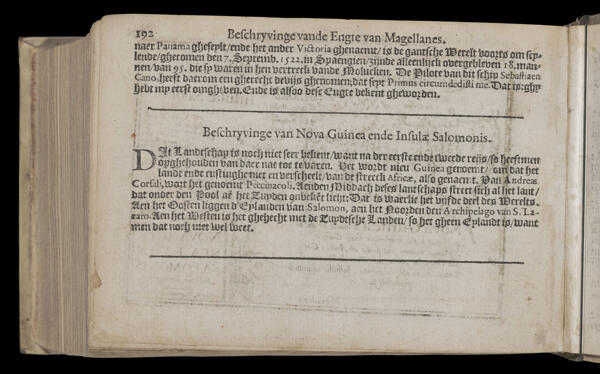 192 Beschryvinge vande Engte van Magellanes.
naer Panama gheseylt/ende het ander Victoria ghenaemt/ is de gantsche Werelt voorts om sey-
lende/ghecomen den 7. Septemb. 1522. in Spaengien/zijnde alleenlick overgebleven 18. man-
nen/van 95. die sy waren in her vertreck vande Molucken. De Pilote van dit schip Sebastiaen
Cano, heeft darrom een gherecht devijs ghenomen, dat seyt Primus circumdedisti me. Dat is: ghy
hebt my eerst omgheven. Ende is alsoo dese Engte bekent gheworden.
Beschryvinge van Nova Guinea ende Insulæ Salomonis.
DIt Landtschap is noch niet seer bekent/want na der eerste ende tweede reijs/so heeftmen
opgehouden van daer nae toe te varen. Het wordt nieu Guinea genoemt/ om dat het
landt ende custinghe niet en verscheelt/van de streeck Africæ, also genaemt. Van Andreas
Corsali, wort het genoemt Peccinacoli. Aenden Middach deses lantschaps strect sich al het lant/
dat onder den Pool aē het Zuyden onbekēt licht: Dat is waerlic het vijfde deel des Werelts.
Aen het Oosten liggen d'Eylanden van Salomon, aen het Noorden den Archipelago van S. La-
zaro. Aen het Westen is het ghehecht met de Zuydtsche Landen/so het gheen Eylandt is/want
men dat noch niet wel weet.